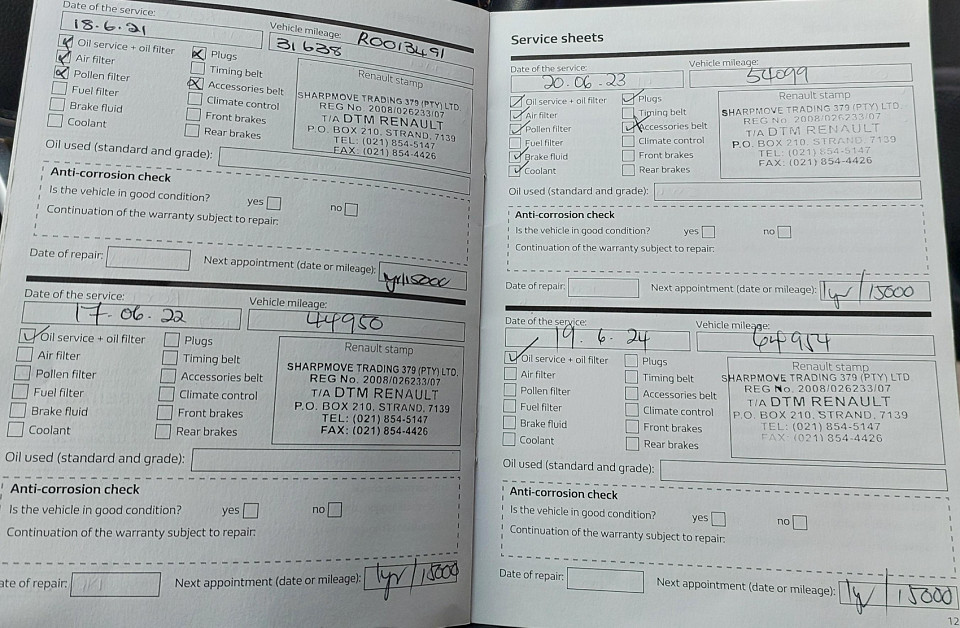 Date of the service:
18.6.21
Vehicle mileage: R0013491
31638
Oil service + oil filter
Air filter
Pollen filter
Fuel filter
Brake fluid
Coolant
Plugs
Timing belt
Accessories belt
Climate control
Front brakes
Rear brakes
Renault stamp
SHARPMOVE TRADING 379 (PTY) LTD.
REG No. 2008/026233/07
T/A DTM RENAULT
P.O. BOX 210, STRAND, 7139
TEL: (021) 854-5147
FAX: (021) 854-4426
Oil used (standard and grade):
Anti-corrosion check
Is the vehicle in good condition? yes no
Continuation of the warranty subject to repair:
Date of repair: Next appointment (date or mileage): 1yr/15000
Date of the service:
17-06.22
Vehicle mileage:
44950
Oil service + oil filter
Air filter
Pollen filter
Fuel filter
Brake fluid
Coolant
Plugs
Timing belt
Accessories belt
Climate control
Front brakes
Rear brakes
Renault stamp
SHARPMOVE TRADING 379 (PTY) LTD.
REG No. 2008/026233/07
T/A DTM RENAULT
P.O. BOX 210, STRAND, 7139
TEL: (021) 854-5147
FAX: (021) 854-4426
Oil used (standard and grade):
Anti-corrosion check
Is the vehicle in good condition? yes no
Continuation of the warranty subject to repair:
ate of repair: Next appointment (date or mileage): 1yr/15000
Service sheets
Date of the service:
20.06.23
Vehicle mileage:
54099
Oil service + oil filter
Air filter
Pollen filter
Fuel filter
Brake fluid
Coolant
Plugs
Timing belt
Accessories belt
Climate control
Front brakes
Rear brakes
Renault stamp
SHARPMOVE TRADING 379 (PTY) LTD.
REG No. 2008/026233/07
T/A DTM RENAULT
P.O. BOX 210, STRAND, 7139
TEL: (021) 854-5147
FAX: (021) 854-4426
Oil used (standard and grade):
Anti-corrosion check
Is the vehicle in good condition? yes no
Continuation of the warranty subject to repair:
Date of repair: Next appointment (date or mileage): 1yr/15000
Date of the service:
19.6.24
Vehicle mileage:
64954
Oil service + oil filter
Air filter
Pollen filter
Fuel filter
Brake fluid
Coolant
Plugs
Timing belt
Accessories belt
Climate control
Front brakes
Rear brakes
Renault stamp
SHARPMOVE TRADING 379 (PTY) LTD
REG No. 2008/026233/07
T/A DTM RENAULT
P.O. BOX 210, STRAND, 7139
TEL: (021) 854-5147
FAX: (021) 854-4426
Oil used (standard and grade):
Anti-corrosion check
Is the vehicle in good condition? yes no
Continuation of the warranty subject to repair:
Date of repair: Next appointment (date or mileage): 1yr/15000
12